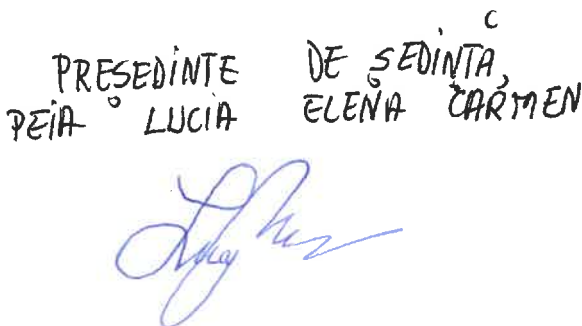 PREȘEDINTE DE ȘEDINȚĂ,
PEIA LUCIA ELENA CARMEN